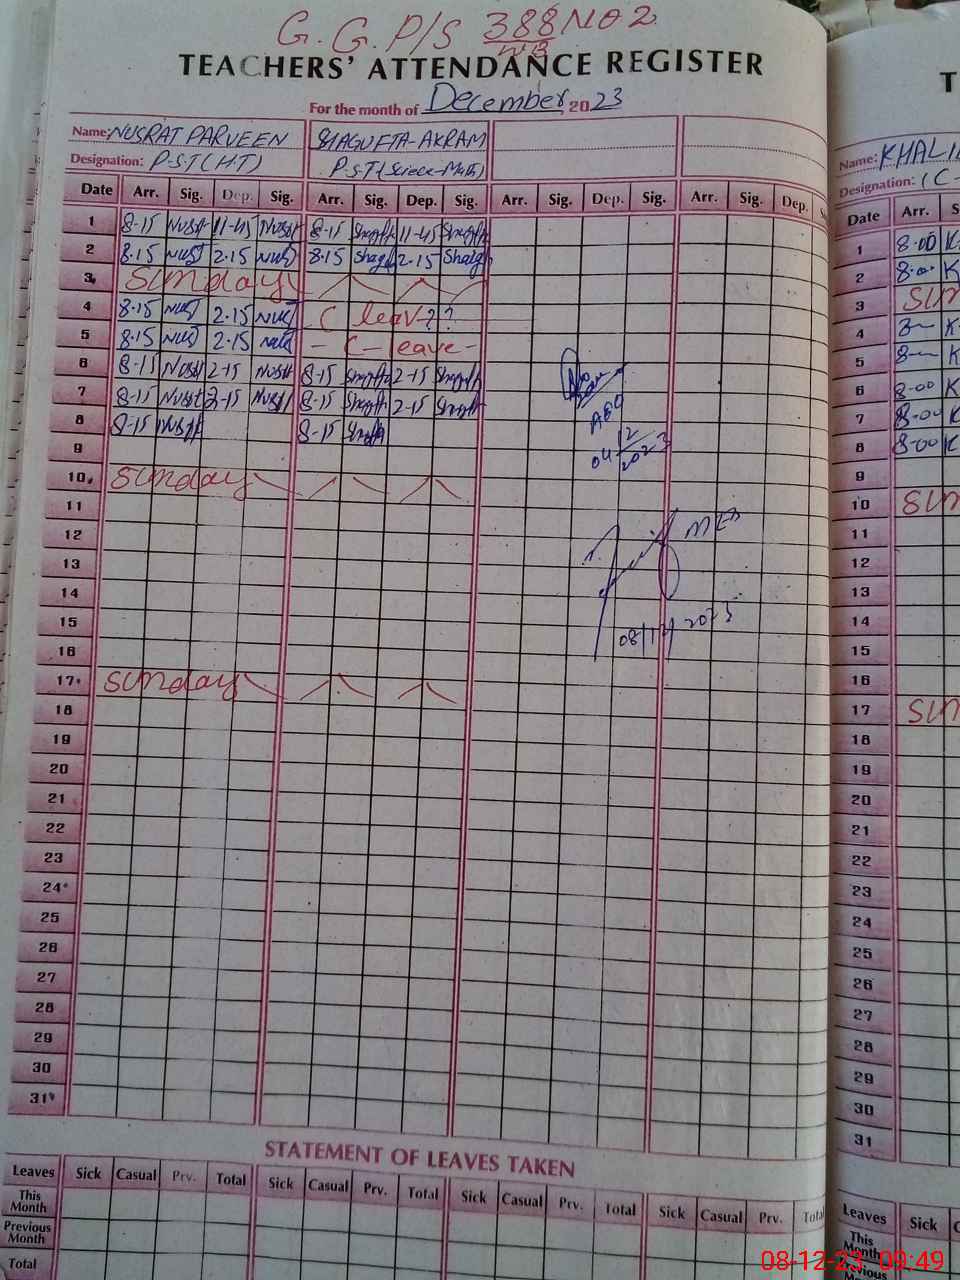 G. G. P/S 388 NO 2
WB
TEACHERS' ATTENDANCE REGISTER
For the month of December, 2023
Name: NUSRAT PARVEEN SHAGUFTA-AKRAM
Designation: P.S.T (H.T) P.S.T (Sciece-Math)
Date Arr. Sig. Dep. Sig. Arr. Sig. Dep. Sig. Arr. Sig. Dep. Sig. Arr. Sig. Dep.
1 8-15 Nusrt 11-45 Nusrt 8-15 11-45
2 8.15 2.15 8.15 2.15
3. Sunday
4 8.15 2.15 C leav-??
5 8.15 2.15 - C- leave-
6 8-15 Nusrt 2-15 Nusrt 8-15 2-15
7 8-15 Nusrt 2-15 Nusrt 8-15 2-15
8 8-15 Nusrt 8-15
9
10. Sunday
11
12
13
14
15
16
17. Sunday
18
19
20
21
22
23
24
25
26
27
28
29
30
31
AEO
04/12/2023
MEA
08/12/2023
STATEMENT OF LEAVES TAKEN
Leaves Sick Casual Prv. Total Sick Casual Prv. Total Sick Casual Prv. Total Sick Casual Prv. Total
This Month
Previous Month
Total
T
Name: KHALI
Designation: (C-
Date Arr. S
1 8.00 K
2 8.00 K
3 SUN
4 8- K
5 8- K
6 8-00 K
7 8-00 K
8 8-00 K
9
10 SUN
11
12
13
14
15
16
17 SUN
18
19
20
21
22
23
24
25
26
27
28
29
30
31
Leaves Sick C
This Month
Previous
08-12-23 09:49